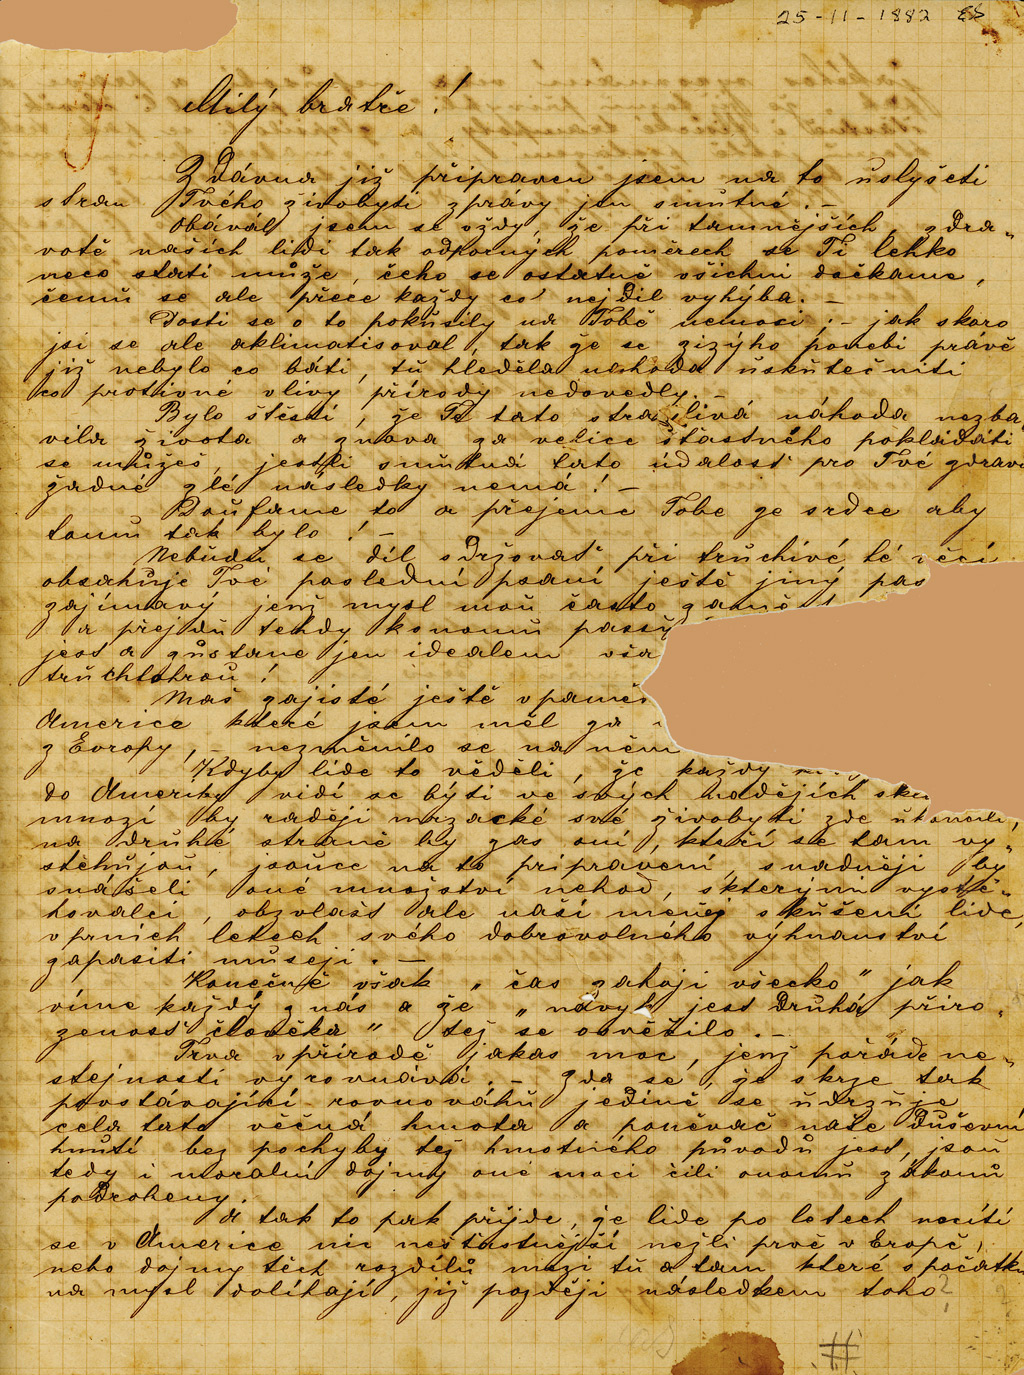 25-11-1882 ES
Milý bratře!
Z dávna již připraven jsem na to uslyšeti
stran Tvého živobytí zprávy jen smutné. –
Obával jsem se vždy, že při tamnějších, zdra„
votě našich lidí tak odporných poměrech se Ti lehko
neco státi může, čeho se ostatně všichni dočkáme,
čemů se ale přece každy co nejdil vyhýba. –
Dosti se o to pokůsily na Tobě nemoci; – jak skoro
jsi se ale aklimatisoval, tak že se zizýho ponebi právě
již nebylo co báti, tů hleděla nahoda ůskůtečniti
co protivné vlivy přírody nedovedly. –
Bylo štěstí, že Tě tato strašlivá náhoda nezba„
vila života a znova za velice šťastného pokládáti
se můžeš, jestli smůtná tato údalost pro Tvé zdraví
žadné zlé následky nemá! –
Doůfame to a přejeme Tobe ze srdce aby
tomů tak bylo! –
Nebůdu se díl zdržovať při trůchlivé té věci
obsahůje Tvé poslední psaní ještě jiný pas
zajímavý jenž mysl moů často zaměst
a přejdů tehdy konomů passů
jest a zůstane jen idealem vša
trůchlohroů!
Maš zajisté ještě vpamě
Americe které jsem měl za
z Evropy, – nezměnilo se na něm
Kdyby lide to věděli, že každy
do Ameriky vidí se býti ve svých nadějích skl
mnozí by raději mrzacké své živobytí zde ůkončili,
na drůhé straně by zas oni, kteří se tam vy„
stěhůjoů, jsoůce na to připravení, snadněji by
snášeli oné množství nehod, skterými vystě„
hovalci, obzvlašt ale naší méněj skůšení lide,
vprních letech svého dobrovolného výhnanství
zapasiti můsejí. –
Konečně však „čas zahojí všecko" jak
víme každý znás a že „návyk jest Drůhá přiro„
zenosť človéka" tež se osvěčilo. –
Trva vpřírodě jakas moc, jenž pořáde ne„
stejnosti vyrovnává. – Zda se, že skrze tak
povstávající rovnováhů jedině se ůdržůje
cela tato věčná hmota a poněvač naše Důševní
hnůtí bez pochyby tej hmotného půvoďů jest, jsoů
tedy i moralní dojmy oné moci čili onomů zákonů
podrobeny.
A tak to pak přijde, že lide po letech necítí
se v Americe nic nešťastnější nežli prvě v Eropě,
nebo dojmy těch rozdílů mezi tů a tam které spočátků
na mysl doléhají, již později následkem toho
#